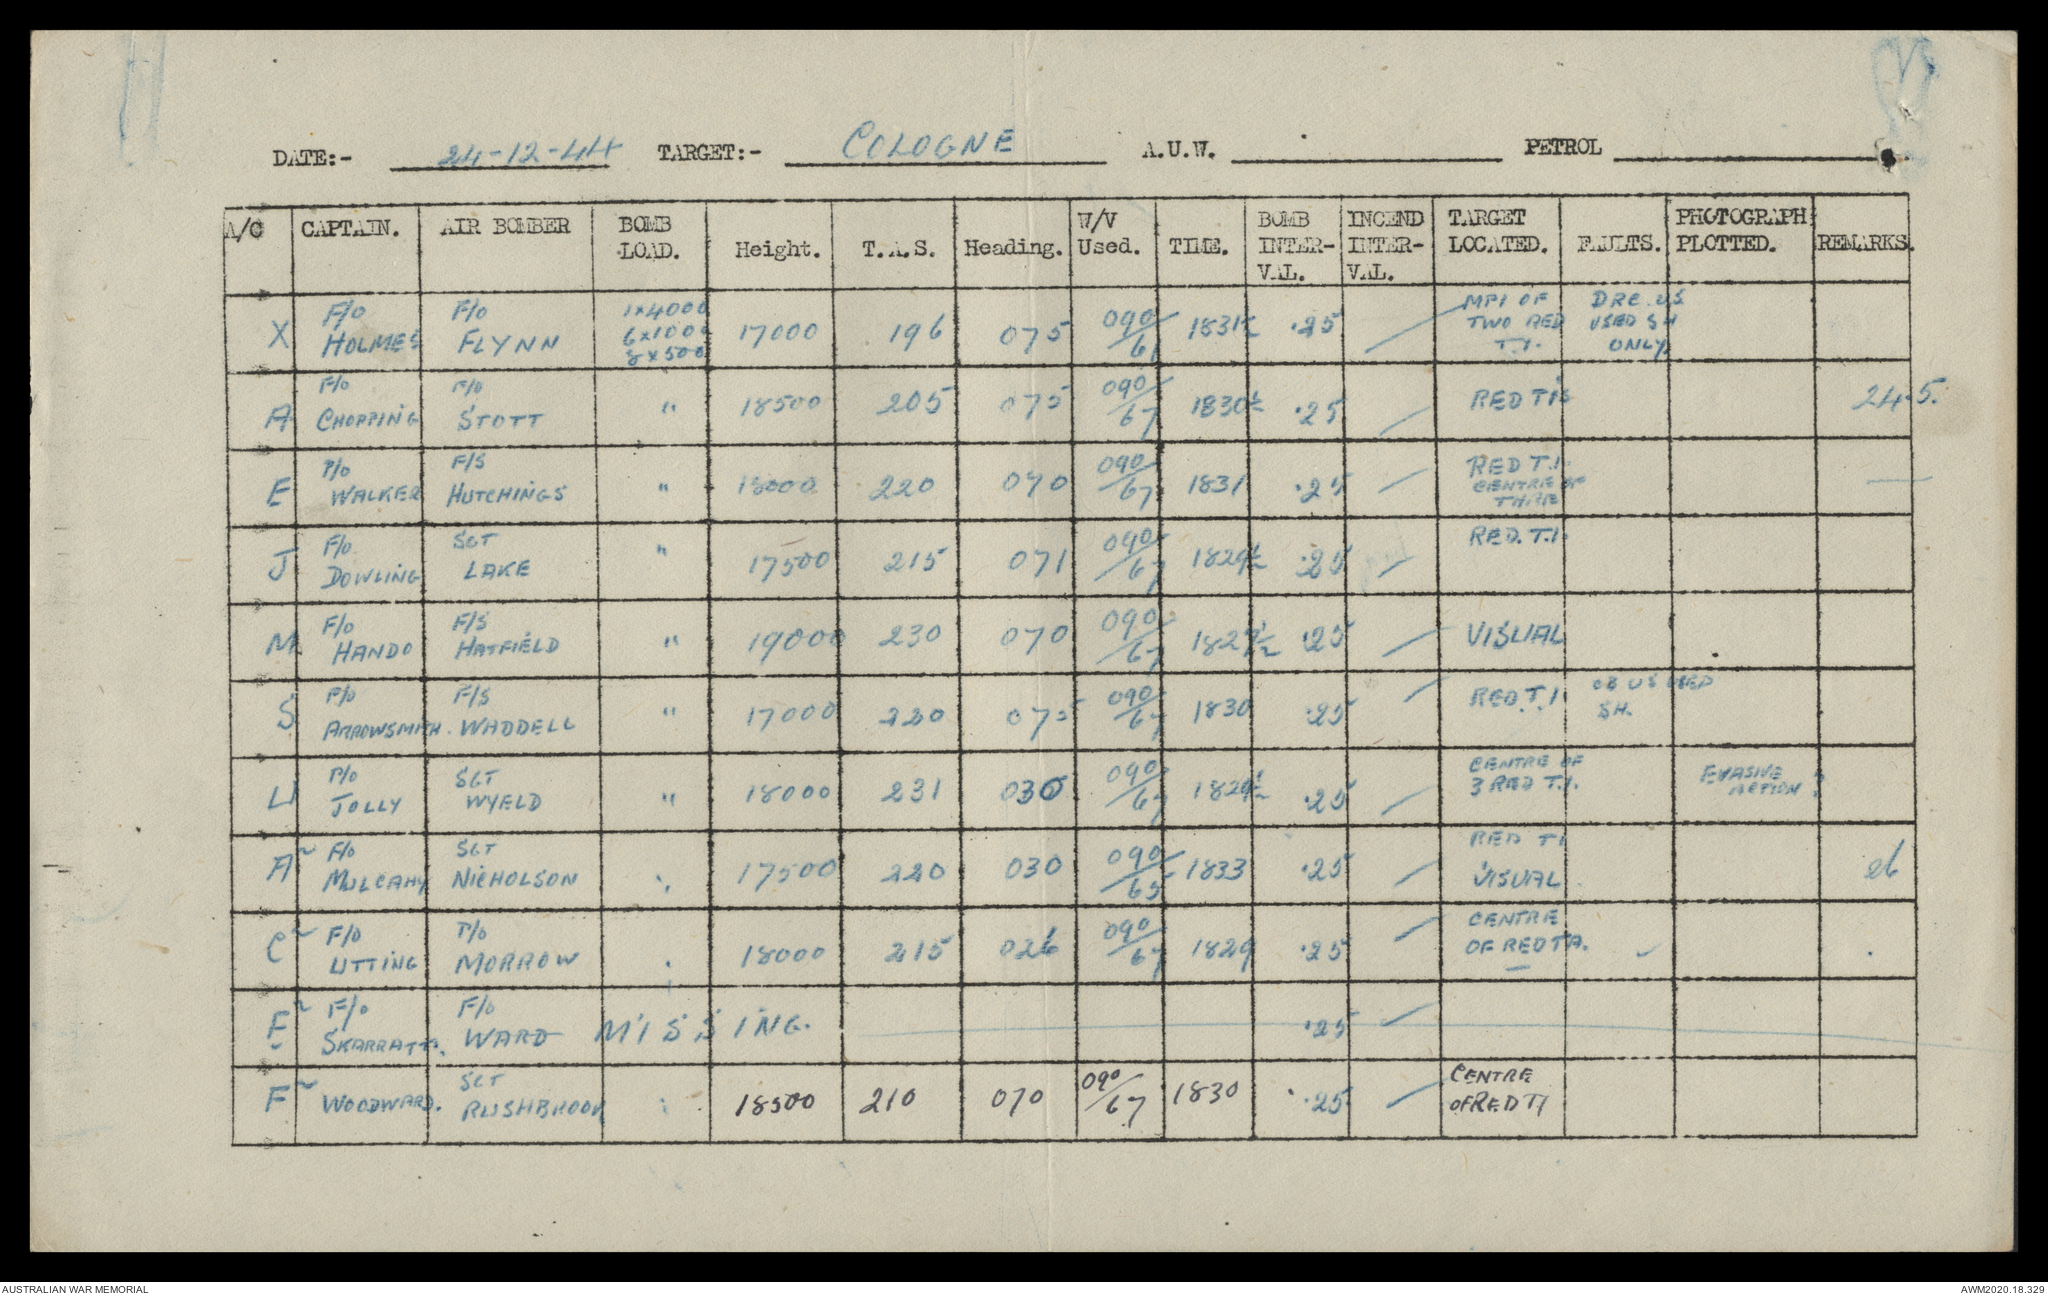 DATE:- 24-12-44 TARGET:- COLOGNE A.U.W. PETROL
A/C CAPTAIN. AIR BOMBER BOMB LOAD. Height. T.A.S. Heading. W/V Used. TIME. BOMB INTER-VAL. INCEND INTER-VAL. TARGET LOCATED. FAULTS. PHOTOGRAPH PLOTTED. REMARKS.
X F/O HOLMES F/O FLYNN 1x4000 6x1000 8x500 17000 196 075 090/61 1831½ .25 / MPI OF TWO RED T.I. DRC. US USED SH ONLY.
A F/O CHOPPING F/O STOTT " 18500 205 075 090/67 1830½ .25 / RED TIS 24.5.
E P/O WALKER F/S HUTCHINGS " 18000 220 070 090/67 1831 .25 / RED T.I. CENTRE OF THREE —
J F/O. DOWLING SGT LAKE " 17500 215 071 090/67 1829½ .25 / RED. T.I.
M F/O HANDO F/S HATFIELD " 19000 230 070 090/67 1829½ .25 / VISUAL
S P/O ARROWSMITH. F/S WADDELL " 17000 220 075 090/67 1830 .25 / RED T.I US USED SH.
U P/O JOLLY SGT WYELD " 18000 231 030 090/67 1829½ .25 / CENTRE OF 3 RED T.I. EVASIVE ACTION
A~ F/O MULCAHY SGT NICHOLSON " 17500 220 030 090/65 1833 .25 / RED TI VISUAL 26
C~ F/O UTTING P/O MORROW " 18000 215 026 090/67 1829 .25 / CENTRE OF RED
E~ F/O SKARRATT. F/O WARD MISSING. .25 /
F~ WOODWARD. SGT RUSHBROOK " 18500 210 070 090/67 1830 .25 / CENTRE OF RED TI
AUSTRALIAN WAR MEMORIAL AWM2020.18.329